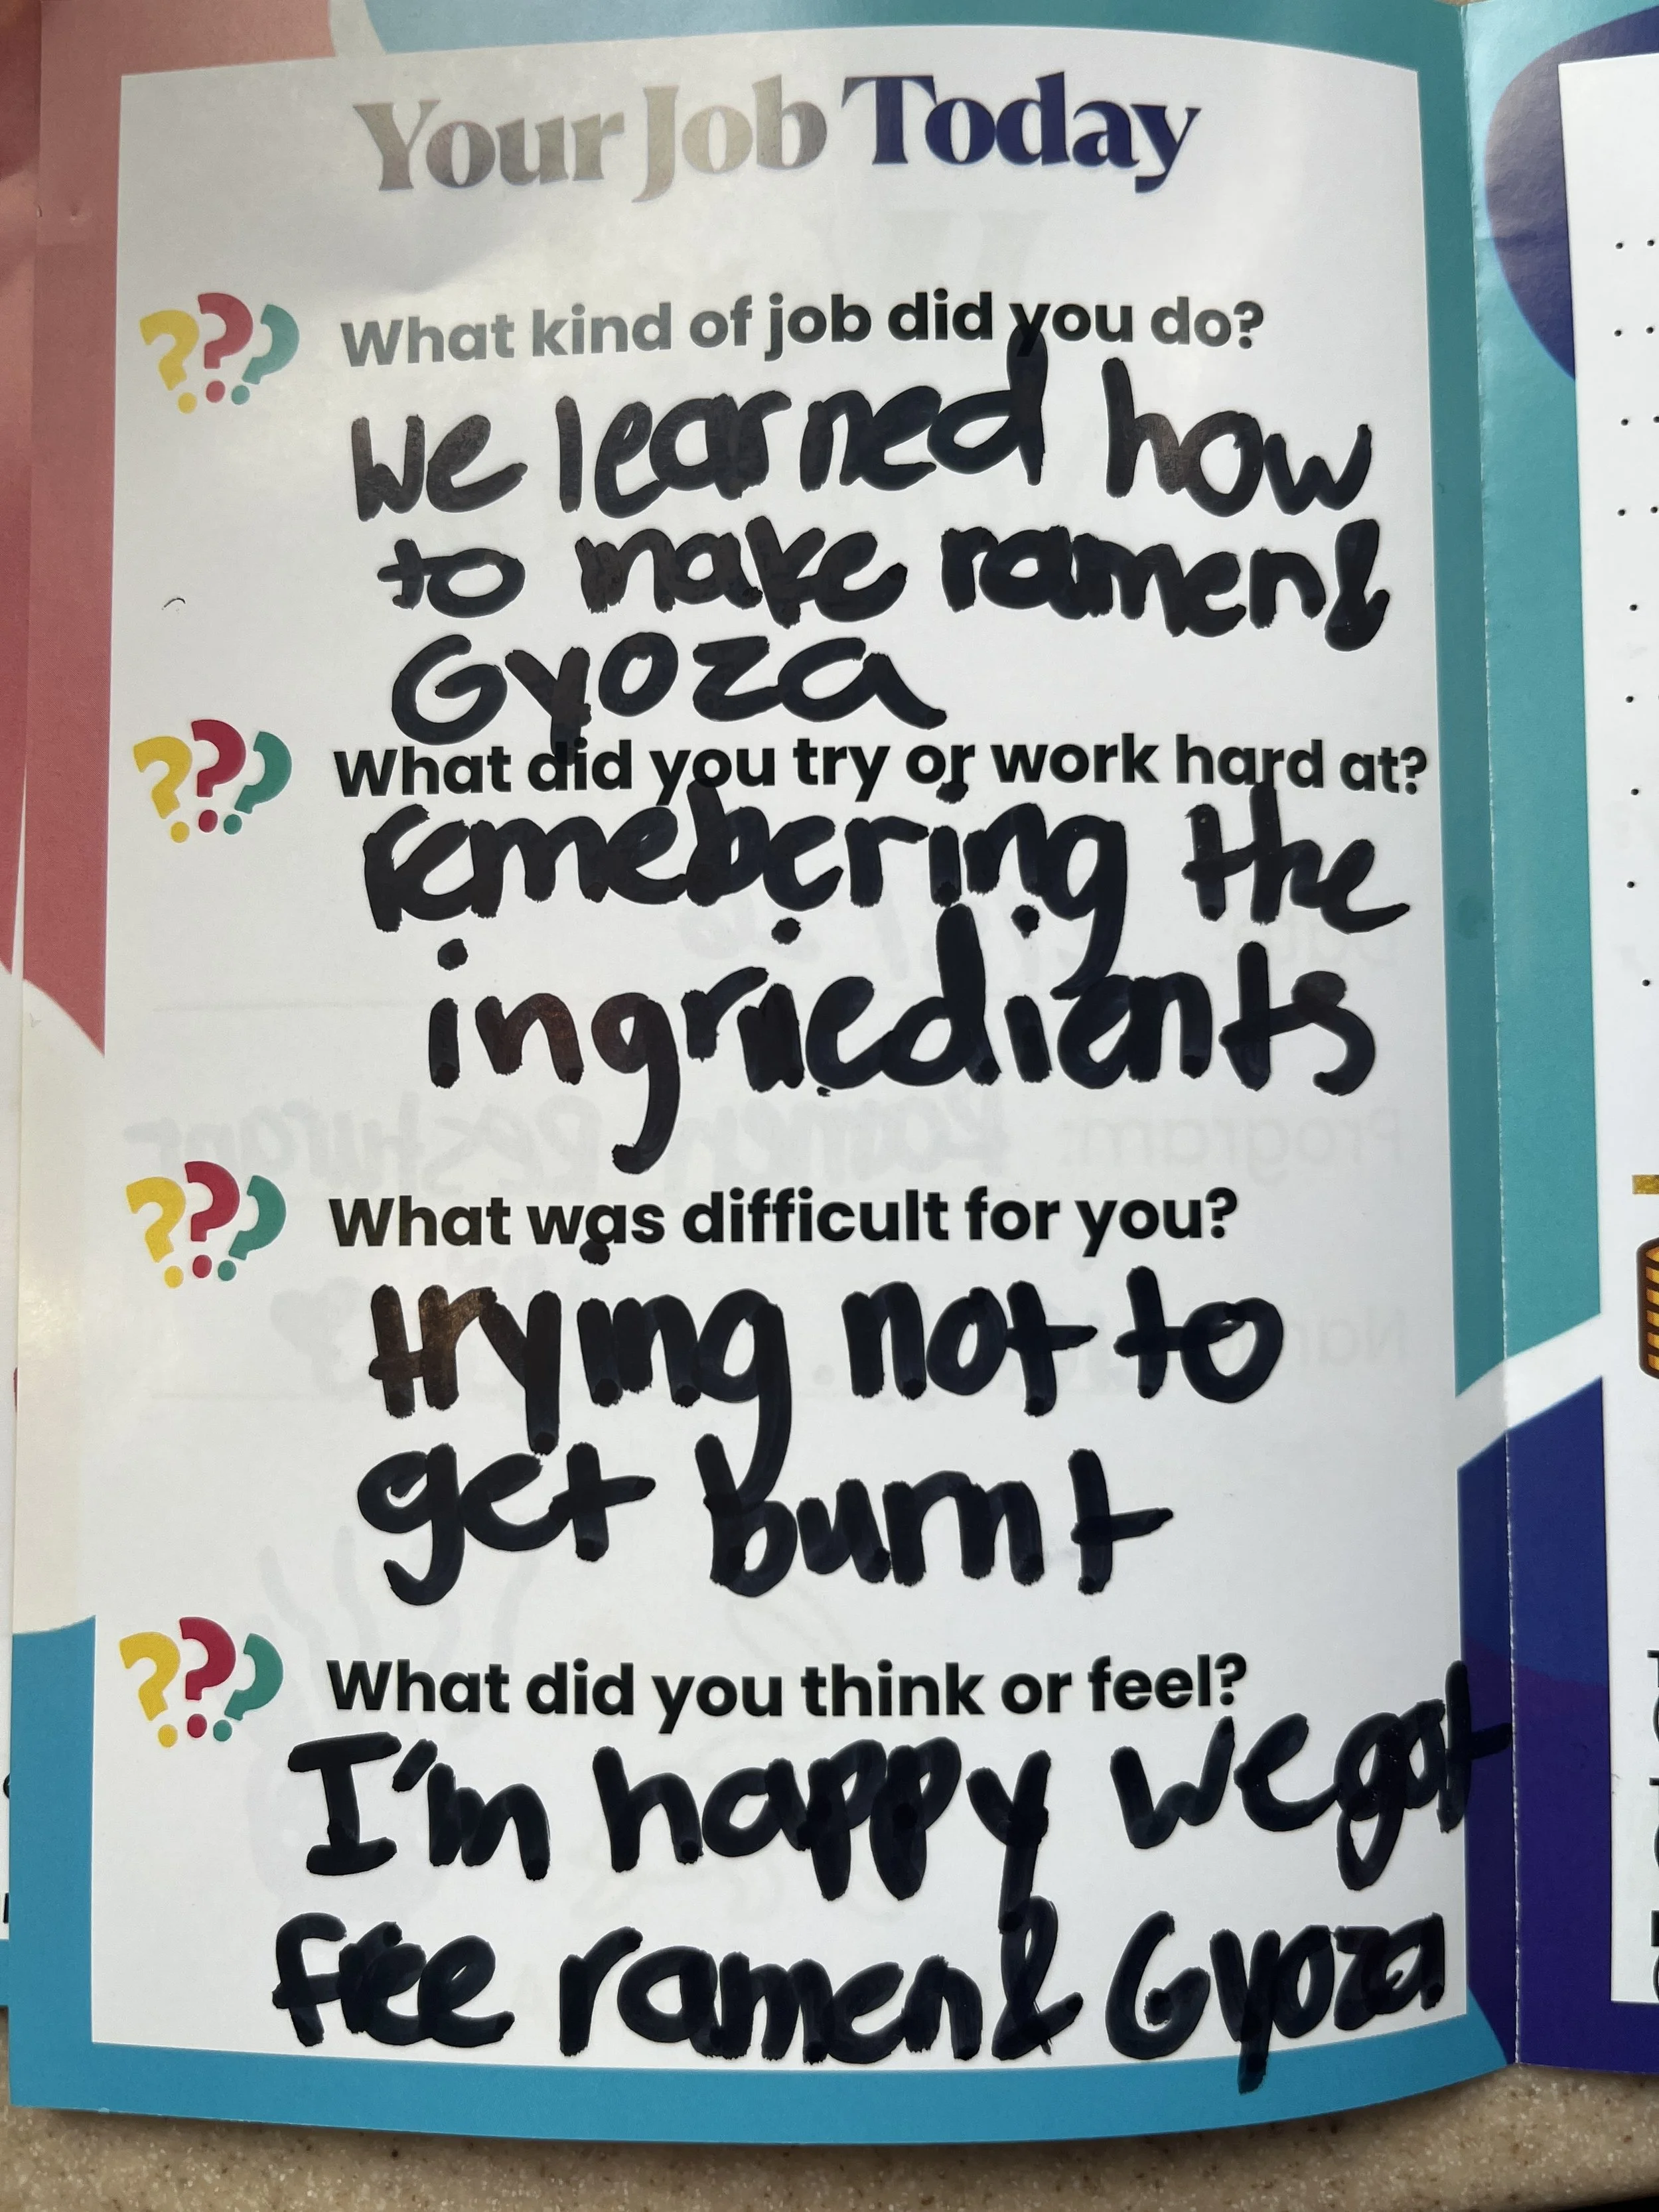 Your Job Today
What kind of job did you do?
We learned how
to make ramen &
Gyoza
What did you try or work hard at?
remebering the
ingriedients
What was difficult for you?
trying not to
get burnt
What did you think or feel?
I'm happy we got
free ramen & Gyoza